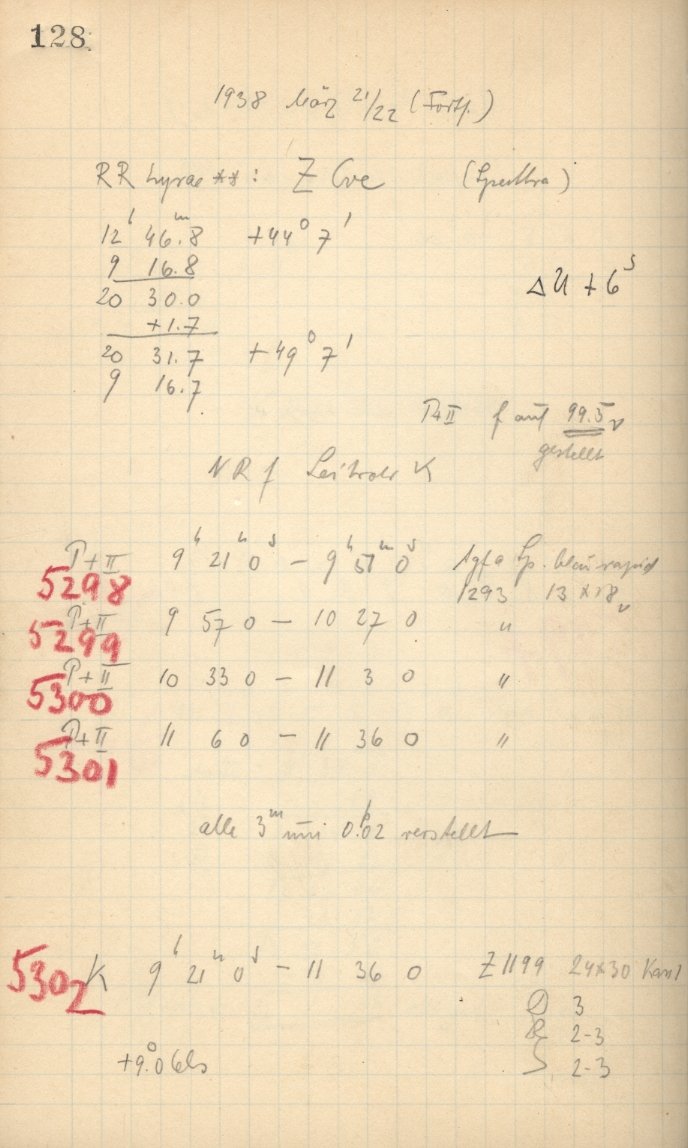 128
1938 März 21/22 (Fortf.)
RR Lyrae **: Z CVe (Spectra)
12ʰ 46.ᵐ8 +44° 7'
9 16.8
ΔU + 6ˢ
20 30.0
+1.7
20 31.7 +49° 7'
9 16.7
P+II f auf 99.5
gestellt
NR f Leitrohr K
P+II 9ʰ 21ᵐ 0ˢ – 9ʰ 51ᵐ 0ˢ Agfa Sp. blau rapid
5298 1293 13 × 18
P+II 9 57 0 – 10 27 0 "
5299
P+II 10 33 0 – 11 3 0 "
5300
P+II 11 6 0 – 11 36 0 "
5301
alle 3ᵐ um 0.02 verstellt
5302 K 9ʰ 21ᵐ 0ˢ – 11 36 0 Z 1199 24×30
3
R 2-3
S 2-3
+9.°0 Cels